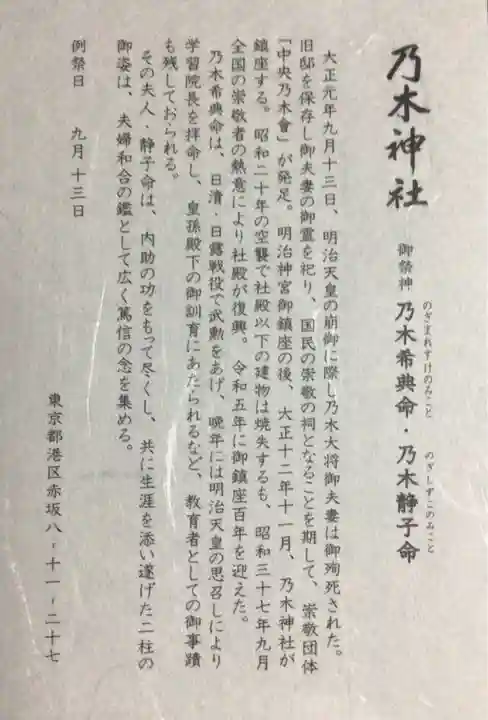 乃木神社
御祭神 乃木希典命・乃木静子命
のぎまれすけのみこと
のぎしずこのみこと
大正元年九月十三日、明治天皇の崩御に際し乃木大将御夫妻は御殉死された。
旧邸を保存し御夫妻の御霊を祀り、国民の崇敬の祠となることを期して、崇敬団体
「中央乃木會」が発足。明治神宮御鎮座の後、大正十二年十一月、乃木神社が
鎮座する。昭和二十年の空襲で社殿以下の建物は焼失するも、昭和三十七年九月
全国の崇敬者の熱意により社殿が復興。令和五年に御鎮座百年を迎えた。
乃木希典命は、日清・日露戦役で武勲をあげ、晩年には明治天皇の思召しにより
学習院長を拝命し、皇孫殿下の御訓育にあたられるなど、教育者としての御事蹟
も残しておられる。
その夫人・静子命は、内助の功をもって尽くし、共に生涯を添い遂げた二柱の
御姿は、夫婦和合の鑑として広く篤信の念を集める。
例祭日 九月十三日
東京都港区赤坂八-十一-二十七